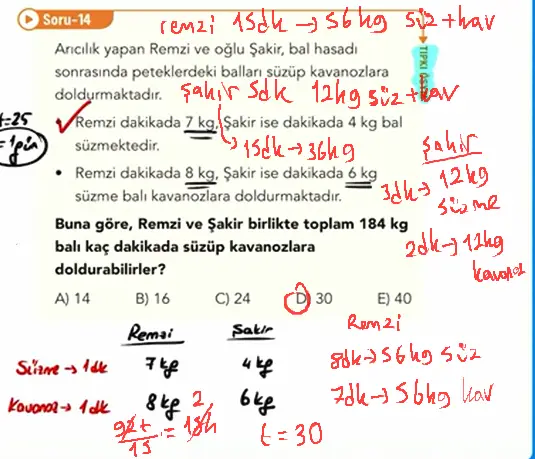 Soru-14
remzi 15dk → 56kg süz+kav
Arıcılık yapan Remzi ve oğlu Şakir, bal hasadı
sonrasında peteklerdeki balları süzüp kavanozlara
doldurmaktadır.
şakir 5dk 12kg süz+kav
TIPKI
t=25
=1gün
Remzi dakikada 7 kg, Şakir ise dakikada 4 kg bal
süzmektedir.
15dk → 36kg
• Remzi dakikada 8 kg, Şakir ise dakikada 6 kg
süzme balı kavanozlara doldurmaktadır.
şakir
3dk → 12kg
süzme
2dk → 12kg
kavanoz
Buna göre, Remzi ve Şakir birlikte toplam 184 kg
balı kaç dakikada süzüp kavanozlara
doldurabilirler?
A) 14 B) 16 C) 24 D) 30 E) 40
Remzi Şakir
Süzme → 1dk 7 kg 4 kg
Kavanoz → 1dk 8 kg 6 kg
Remzi
8dk → 56kg süz
7dk → 56kg kav
92t/15 = 184
2
t = 30